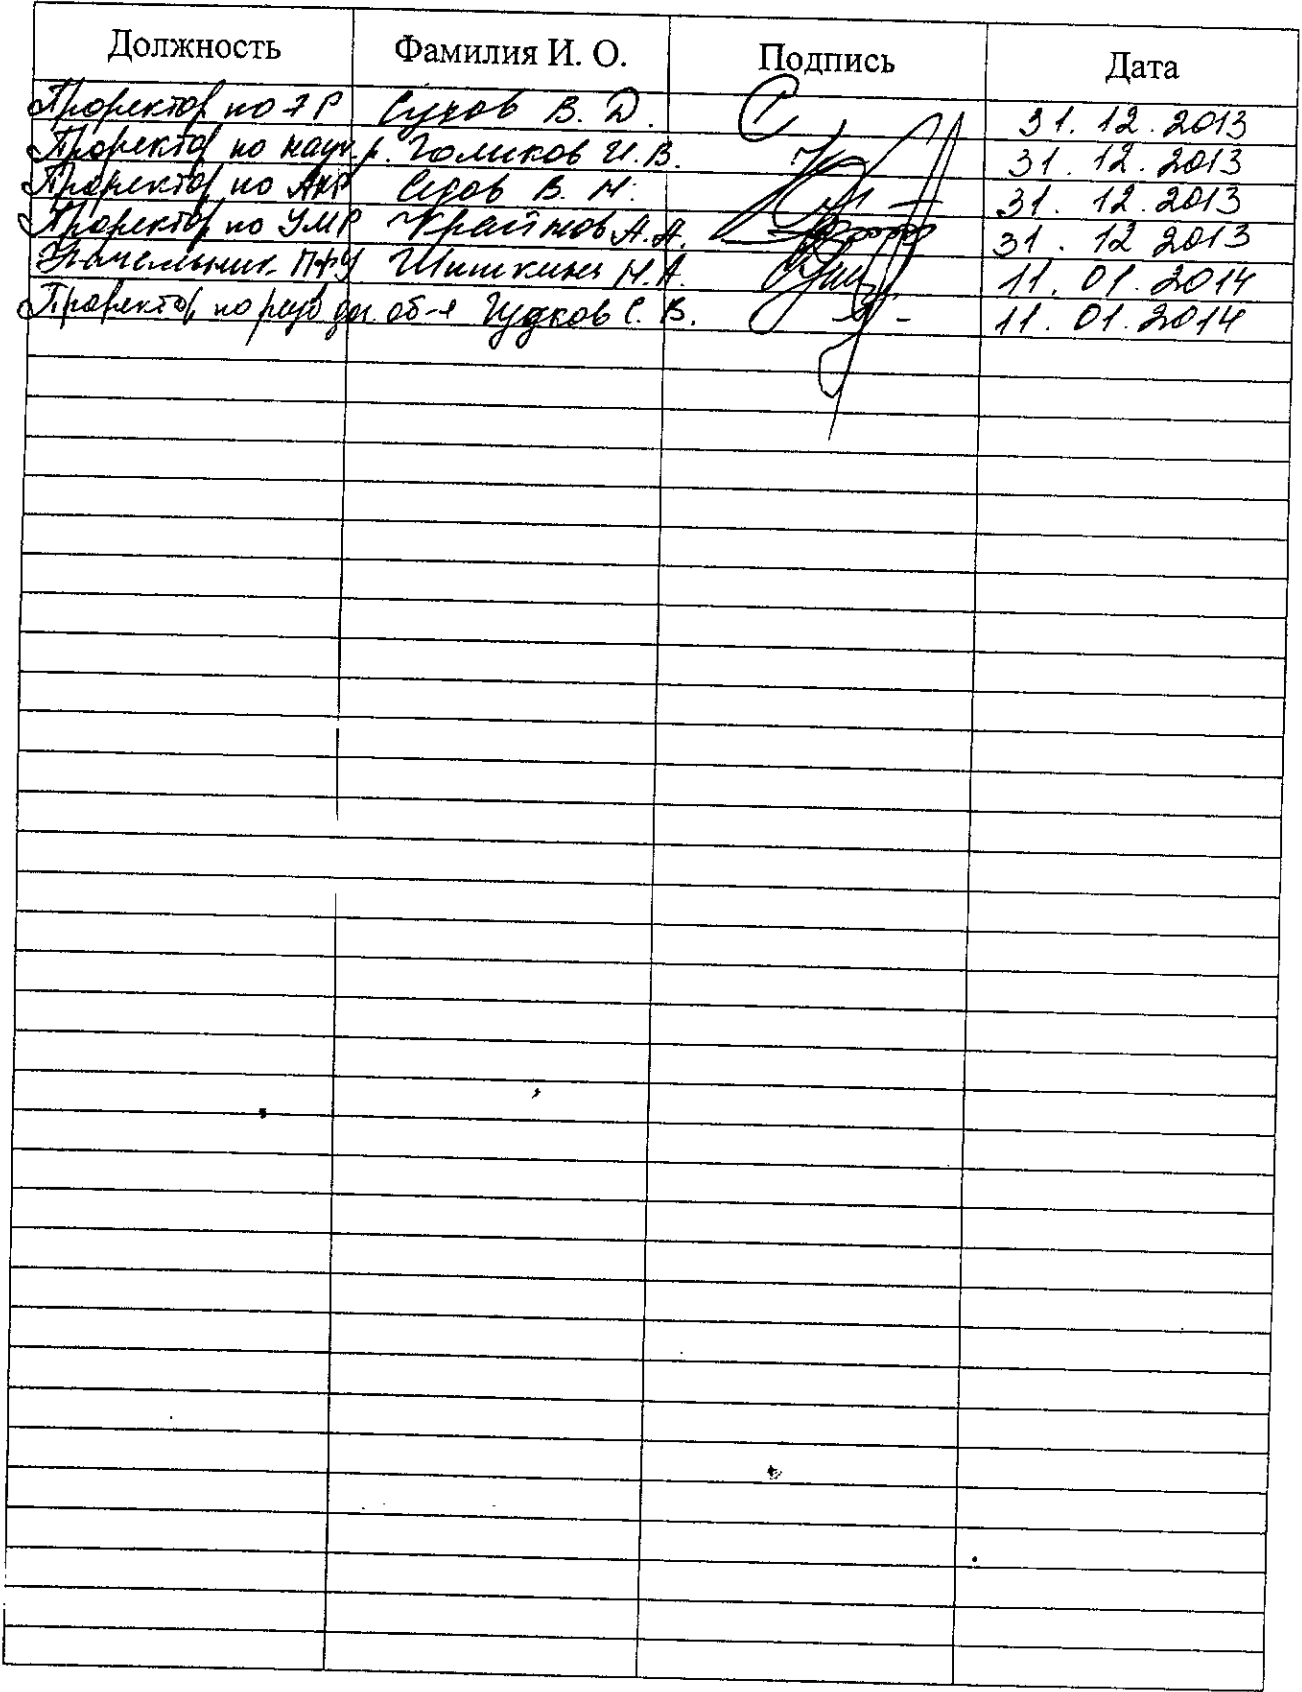 Должность Фамилия И. О. Подпись Дата
Проректор по Сухов В. Д. 31. 12. 2013
Проректор по науч. р. Голиков И. В. 31. 12. 2013
Проректор по АХР Седов В. Н. 31. 12. 2013
Проректор по УМР Крайнов А. А. 31. 12 2013
Начальник ПФУ Шишкина Н. А. 11. 01. 2014
Проректор по об-я Гудков С. В. 11. 01. 2014